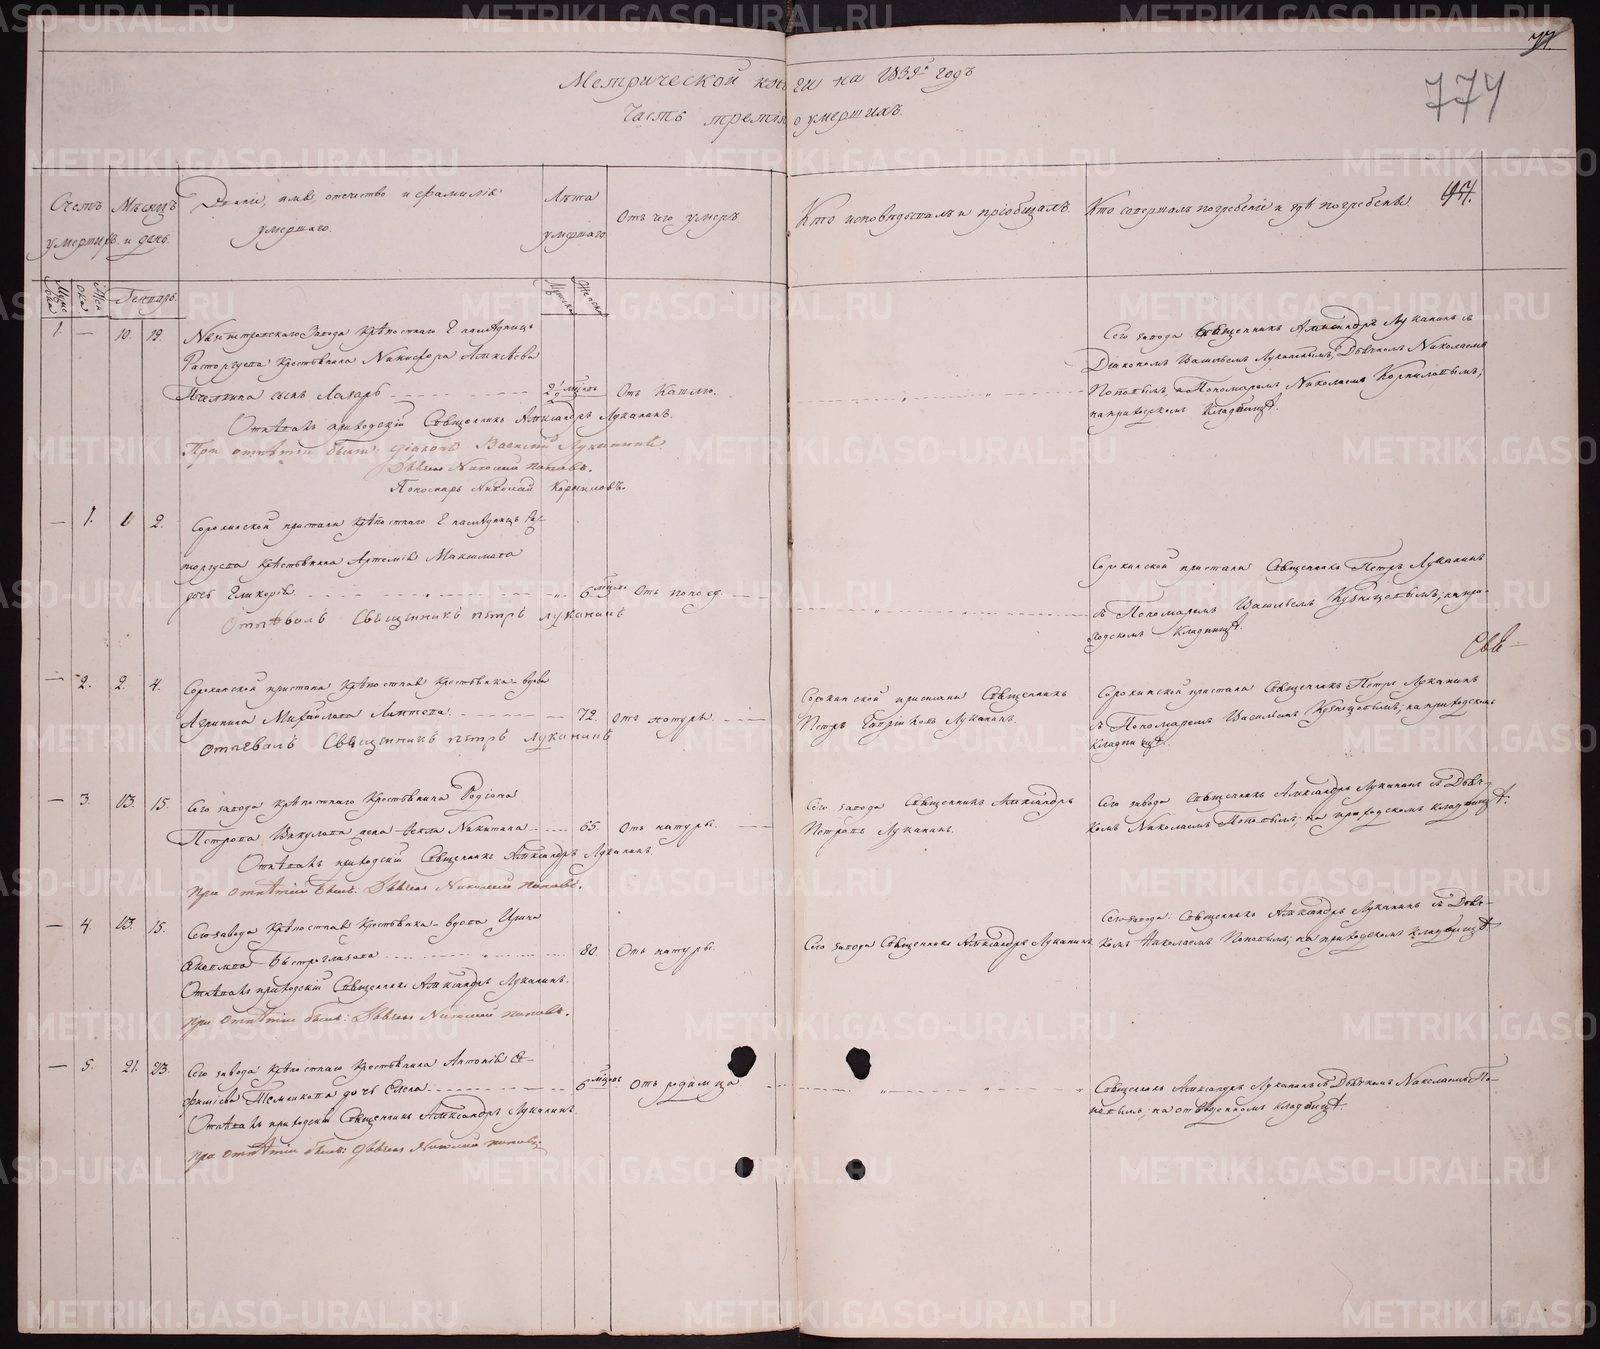 77.
774
Метрической книги на 1839й годъ
Часть третія о умершихъ.
Счетъ умершихъ.
Мѣсяцъ и день.
Званіе, имя, отечество и фамилія умершаго.
Лѣта умершаго
Отъ чего умеръ
Кто исповѣдывалъ и пріобщалъ.
Кто совершалъ погребеніе и гдѣ погребены.
Генварь.
1 — 10. 12.
Завода крѣпостнаго
Расторгуева крестьянина Никифора Алексѣева
сынъ Лазарь
Отъ кашлю.
Отпѣвалъ приходскій Священникъ Александръ Луканинъ.
При отпѣтіи были: діаконъ Василій Луканинъ
Дьячекъ Николай Поповъ.
Пономарь Николай Корниловъ.
Сего завода Священникъ Александръ Луканинъ съ
Діакономъ Васильемъ Луканинымъ, Дьячкомъ Николаемъ
Поповымъ, и Пономаремъ Николаемъ Корниловымъ;
на приходскомъ кладбищѣ.
— 1. 1 2.
Сорокинской пристани крѣпостнаго Г. наслѣдницъ Рас-
торгуева крестьянина Артемія Максимова
дочь Гликерія
6 мѣсяц. Отъ поносу.
Отпѣвалъ Священникъ Петръ Луканинъ
Сорокинской пристани Священникъ Петръ Луканинъ
съ Пономаремъ Васильемъ Кузнецовымъ; на при-
ходскомъ кладбищѣ.
— 2. 2. 4.
Сорокинской пристани крѣпостная крестьянка - вдова
Агрипина Михайлова
72. Отъ натуры.
Отпевалъ Священникъ Петръ Луканинъ
Сорокинской пристани Священникъ
Петръ Луканинъ.
Сорокинской пристани Священникъ Петръ Луканинъ
съ Пономаремъ Васильемъ Кузнецовымъ; на приходскомъ
кладбищѣ.
— 3. 13. 15.
Сего завода крѣпостнаго крестьянина Родіона
Петрова Викулова жена Фекла Никитина
65. Отъ натуры.
Отпѣвалъ приходскій Священникъ Александръ Луканинъ.
При отпѣтіи былъ: Дьячекъ Николай Поповъ.
Сего завода Священникъ Александръ
Петровъ Луканинъ.
Сего завода Священникъ Александръ Луканинъ съ Дьяч-
комъ Николаемъ Поповымъ; на приходскомъ кладбищѣ.
— 4. 13. 15.
Сего завода крѣпостная крестьянка - вдова Ирина
Быстроглазова
80. Отъ натуры.
Отпѣвалъ приходскій Священникъ Александръ Луканинъ.
При отпѣтіи былъ: Дьячекъ Николай Поповъ.
Сего завода Священникъ Александръ Луканинъ
Сего завода Священникъ Александръ Луканинъ съ Дьяч-
комъ Николаемъ Поповымъ; на приходскомъ кладбищѣ.
— 5. 21. 23.
Сего завода крѣпостнаго крестьянина Антонія
дочь Елена
6 мѣсяц. Отъ родимца
Отпѣвалъ приходскій Священникъ Александръ Луканинъ
При отпѣтіи былъ: Дьячекъ Николай Поповъ.
Священникъ Александръ Луканинъ съ Дьячкомъ Николаемъ По-
повымъ; на отведенномъ кладбищѣ.
METRIKI.GASO-URAL.RU